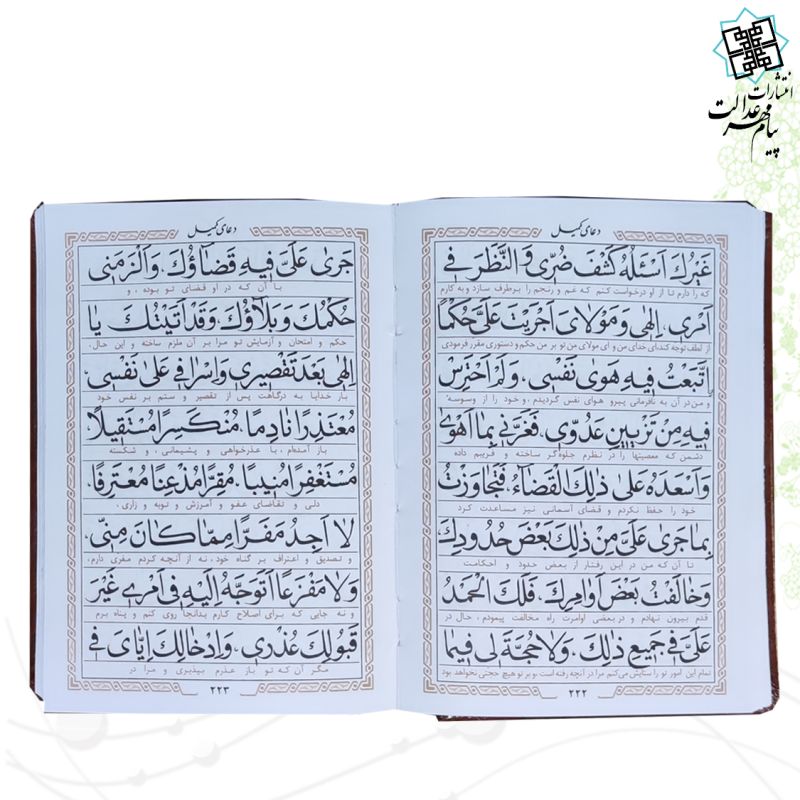 انتشارات
پیام مهر عدالت
دعای کمیل
غَیْرُكَ اَسْئَلُهُ كَشْفَ ضُرّی وَالنَّظَرَ فی
که را دارم تا از او درخواست کنم که غم و رنجم را برطرف سازد و به کارم
اَمْری، اِلهی وَ مَوْلایَ اَجْرَیْتَ عَلَیَّ حُكْمًا
از لطف توجه کند ای خدای من و ای مولای من تو بر من حکم و دستوری مقرر فرمودی
اِتَّبَعْتُ فیهِ هَوی نَفْسی، وَلَمْ اَحْتَرِسْ
و من در آن به نافرمانی پیرو هوای نفس گردیدم، و خود را از وسوسه
فیهِ مِنْ تَزْیینِ عَدُوّی، فَغَرَّنی بِما اَهْوی
دشمن که معصیتها را در نظرم جلوه‌گر ساخته و فریبم داده
وَاَسْعَدَهُ عَلی ذلِكَ الْقَضآءُ، فَتَجاوَزْتُ
خود را حفظ نکردم و قضای آسمانی نیز مساعدت کرد
بِما جَری عَلَیَّ مِنْ ذلِكَ بَعْضَ حُدُودِكَ
تا آن که من در این رفتار از بعض حدود و احکامت
وَخالَفْتُ بَعْضَ اَوامِرِكَ، فَلَكَ الْحَمْدُ
قدم بیرون نهادم و در بعضی اوامرت راه مخالفت پیمودم، حال در
عَلَیَّ فی جَمیعِ ذلِكَ، وَلا حُجَّةَ لی فیما
تمام این امور تو را ستایش می‌کنم مرا در آنچه رفته است، و بر تو هیچ حجتی نخواهد بود
۲۲۲
دعای کمیل
جَری عَلَیَّ فیهِ قَضآؤُكَ، وَاَلْزَمَنی
با آن که در او قضای تو بوده، و
حُكْمُكَ وَ بَلآؤُكَ، وَقَدْ اَتَیْتُكَ یا
حکم و امتحان و آزمایش تو مرا بر آن ملزم ساخته و این حال،
اِلهی بَعْدَ تَقْصیری وَاِسْرافی عَلی نَفْسی،
بار خدایا به درگاهت پس از تقصیر و ستم بر نفس خود
مُعْتَذِرًا نادِمًا، مُنْكَسِرًا مُسْتَقیلاً،
باز آمده‌ام، با عذرخواهی و پشیمانی، و شکسته
مُسْتَغْفِرًا مُنیبًا، مُقِرًّا مُذْعِنًا مُعْتَرِفًا،
دلی و تقاضای عفو و آمرزش و توبه و زاری،
لا اَجِدُ مَفَرًّا مِمّا كانَ مِنّی،
و تصدیق و اعتراف بر گناه خود، نه از آنچه کردم مفری دارم،
وَلا مَفْزَعًا اَتَوَجَّهُ اِلَیْهِ فی اَمْری غَیْرَ
و نه جایی که برای اصلاح کارم بدانجا روی کنم و پناه برم
قَبُولِكَ عُذْری، وَاِدْخالِكَ اِیّایَ فی
مگر آن که تو باز عذرم بپذیری و مرا در
۲۲۳